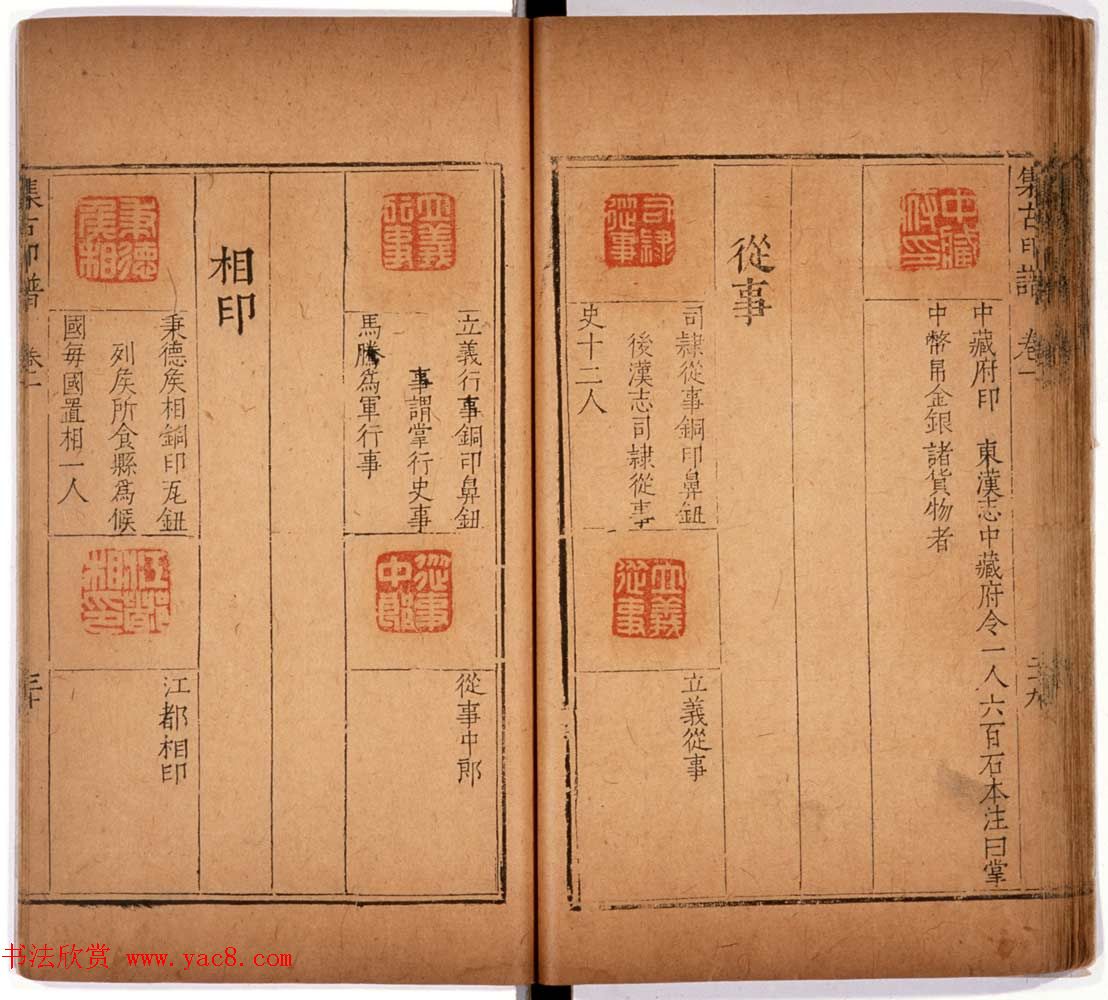 集古印譜
卷一
二十九
中藏府印
中藏府印　東漢志中藏府令一人六百石本注曰掌
中幣帛金銀諸貨物者
從事
司隷從事
司隷從事銅印鼻鈕
後漢志司隷從事
史十二人
立義從事
立義從事
立義行事
立義行事銅印鼻鈕
事謂掌行史事
馬騰為軍行事
從事中郎
從事中郎
相印
秉德矦相
秉德矦相銅印瓦鈕
列矦所食縣為候
國每國置相一人
江都相印
江都相印
集古印譜
三十
书法欣赏 www.yac8.com